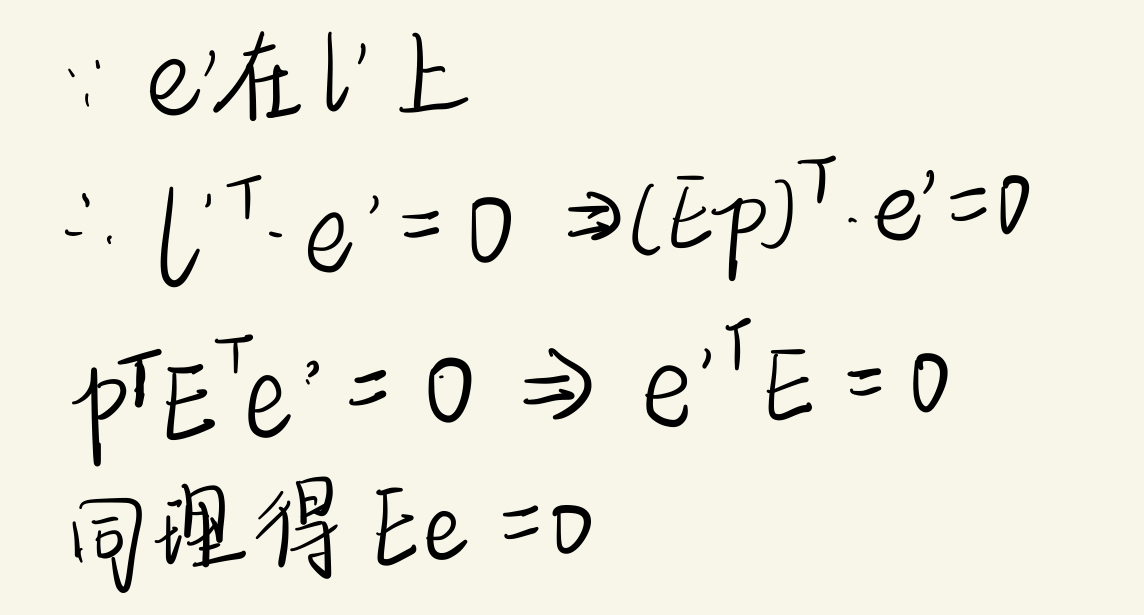 ∵ e'在l'上
∴ l'ᵀ·e'=0 ⇒(Ep)ᵀ·e'=0
pᵀEᵀe'=0 ⇒ e'ᵀE=0
同理得 Ee=0